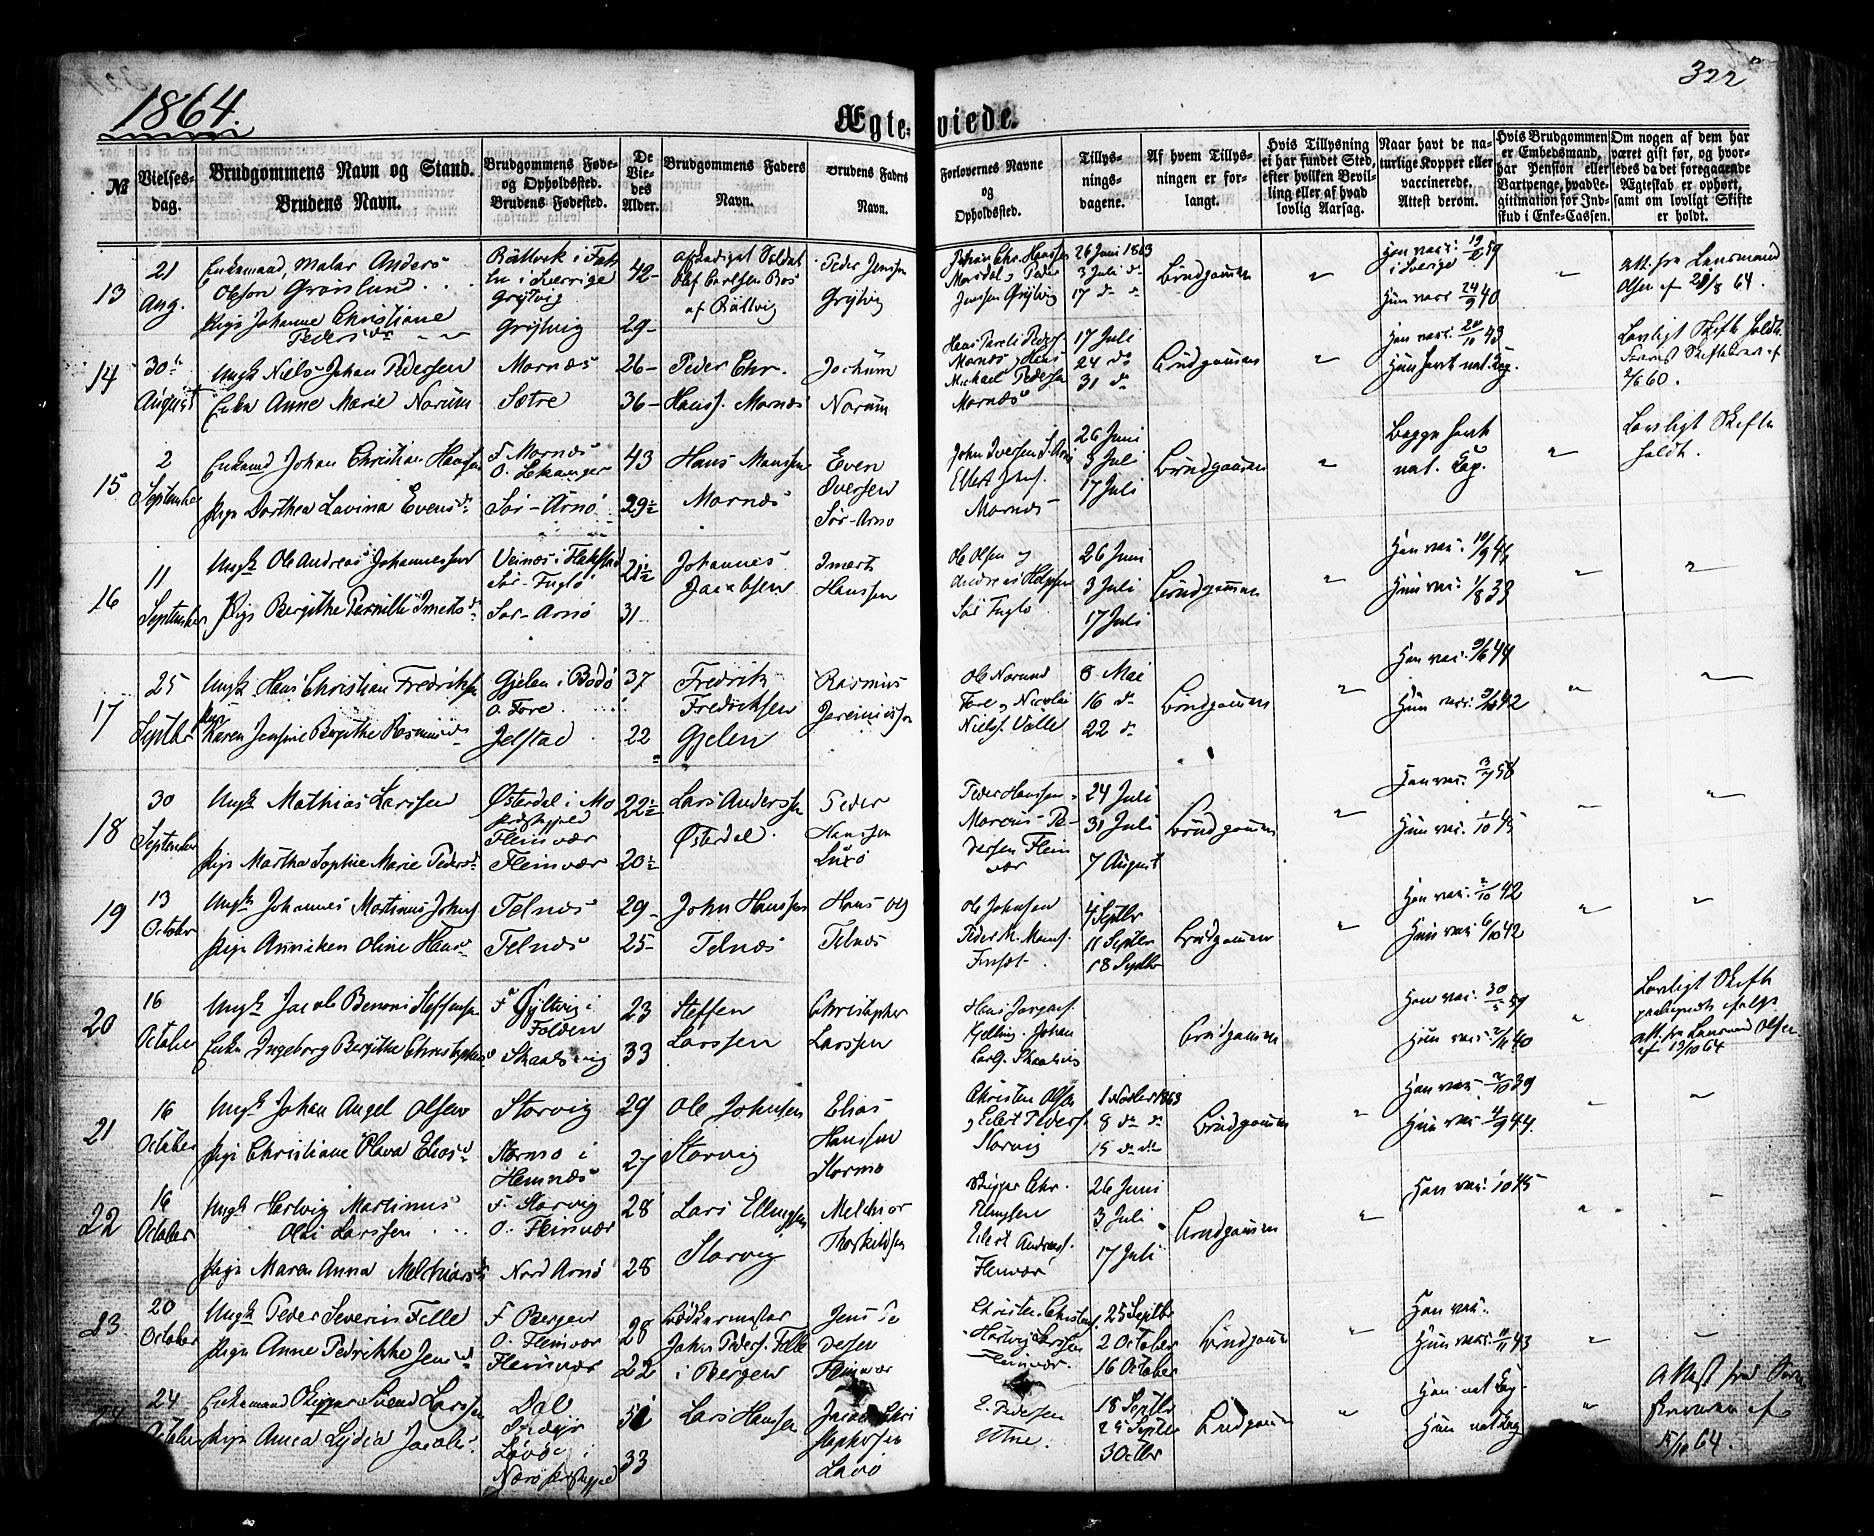 1864.
322
Ægteviede.
№
Vielsesdag.
Brudgommens Navn og Stand.
Brudens Navn.
Brudgommens Føde- og Opholdssted.
Brudens Fødested.
De Viedes Alder.
Brudgommens Faders Navn.
Brudens Faders Navn.
Forlovernes Navne og Opholdssted.
Tillysningsdagene.
Af hvem Tillysningen er forlangt.
Hvis Tillysning ei har fundet Sted, efter hvilken Bevilling eller af hvad lovlig Aarsag.
Naar havt de naturlige Kopper eller vaccinerede, Attest derom.
Hvis Brudgommen er Embedsmand, har Pension eller Vartpenge, hvad Legitimation for Indskud i Enke-Cassen.
Om nogen af dem har været gift før, og hvorledes da det foregaaende Ægteskab er ophørt, samt om lovligt Skifte er holdt.
13
21 Aug.
Enkemand, Maler Anders Olsson Grønlund
Pige Johanne Christiane Pedersdr
Grytvig
Grytvig
42
29
Peder Jenssen Grytvig
26 Juni 1863
3 Juli do
17 do do
Brudgommen
"
Han vac: 19/2 57 i Sverige
Hun vacc 24/9 40
"
Att. fra Lensmand Olsen af 20/8 64.
14
30te August
Ungk Niels Johan Pedersen
Enke Anne Marie Norum
Mornæs
Sætre
26
36
Peder Chr. Hanss. Mornæs
Jochum Norum
Michael Pedersen Mornæs
17 Juli
24 do
31 do
Brudgommen
"
Han vac: 20/10 43
Hun havt nat. Kop.
Lovligt Skifte holdt.
2/6 60.
15
2 September
Enkemd Johan Christian Hanssen
Pige Dorthea Lavina Evensdr
F. Mornæs
O. Lekanger
Sør-Arnø
43
29½
Hans Monssen Mornæs
Even Iversen Sør-Arnø
Ellert Johns. Mornæs
26 Juni
3 Juli
17 Juli
Brudgommen
"
Begge havt nat. Kop.
"
Lovligt Skifte holdt.
16
11 September
Ungk Ole Andreas Johannessen
Pige Bergithe Pernille Imertsdr
Veinæs i Flakstad
Sør-Fuglø
Sør-Arnø
21½
31
Johannes Jacobsen
Imert Hanssen
Ole Olsen og
Sør Fuglø
26 Juni
3 Juli
17 Juli
Brudgommen
"
Han vac: 10/9 47
Hun vac: 1/8 33
"
"
17
25 Septbr
Ungk Hans Christian Fredriksen
Pige Karen Jensine Bergithe Rasmusdr
Gjelen i Bodø
O. Fore
Jelstad
37
22
Fredrik Fredriksen Gjelen
Rasmus Jeremiassen
Ole Norund
Fore og Nicolai Niels. Valle
8 Mai
16 do
22 do
Brudgommen
"
Han vac: 9/6 44
Hun vac: 9/10 42
"
"
18
30 September
Ungk Mathias Larssen
Pige Martha Sophie Marie Pedersdr
Østerdal i Mo Præstegjeld
Fleinvær
Fleinvær
22½
20½
Lars Anderssen Østerdal
Peder Hanssen Luxø
Peder Hanssen
Marcus Pedersen Fleinvær
24 Juli
31 Juli
7 August
Brudgommen
"
Han vac: 3/7 58
Hun vac: 1/10 45
"
"
19
13 October
Ungk Johannes Martinus Johns.
Pige Anniken Oline Hansdr
Telnæs
Telnæs
29
25
John Hanssen Telnæs
Hans Olss Telnæs
Ole Johnsen
Peder M. Monss.
4 Septbr
11 Septbr
18 Septbr
Brudgommen
"
Han vac: 2/10 42
Hun vac 6/10 42
"
"
20
16 October
Ungk Jacob Benoni Steffensen
Enke Ingeborg Bergithe Christophersdr
F. Øyltvig i Folden
Skaalsvig
23
33
Steffen Larssen
Christopher Larssen
Kjelling. Johan
Brudgommen
Han vac: 30/5 59
Hun vac: 2/11 40
"
Lovligt Skifte
att. fra Lensmand Olsen af 13/10 64
21
16 October
Ungk Johan Angel Olsen
Pige Christiane Olava Eliasdr
Storvig
Stormo i Hemnæs
29
27
Ole Johnsen Storvig
Elias Hanssen Stormo
Christen Olsen og Eilert Peders. Storvig
1 Novber 1863
8 do do
15 do do
Brudgommen
"
Han vac: 2/10 39
Hun vac 4/9 44
"
"
22
16 October
Ungk Hertvig Martinus Oldi Larssen
Pige Maren Anna Melchiorsdr
F. Storvig
O. Fleinvær
Nord Arnø
28
28
Lars Ellingsen Storvig
Melchior Torkildsen
Skipper Chr.
Eilert Andreass. Fleinvær
26 Juni
3 Juli
17 Juli
Brudgommen
"
Han vac: 1045
"
"
23
20 October
Ungk Peder Severin Felle
Pige Anne Pedrikke Jensdr
F. Bergen
O. Fleinvær
Fleinvær
28
22
Bødkermester Johan Peders. Felle i Bergen
Jens Pedersen Fleinvær
Hartvig Larssen Fleinvær.
25 Septbr
2 October
16 October
Brudgommen
"
Han vac:
Hun vac: 11/11 43
"
"
24
24 October
Enkemand Skipper Svend Larssen
Pige Anna Lydia Jacobs.
Dal
Løvø i Nærø Præstegjeld
51
33
Lars Hanssen
Jacob Christophersen Løvø
E. Pedersen Utne.
18 Septbr
25 Septbr
3 Octbr
Brudgommen
"
Han nat Kop.
Hun nat Kop
"
Attest fra
15/10 64.